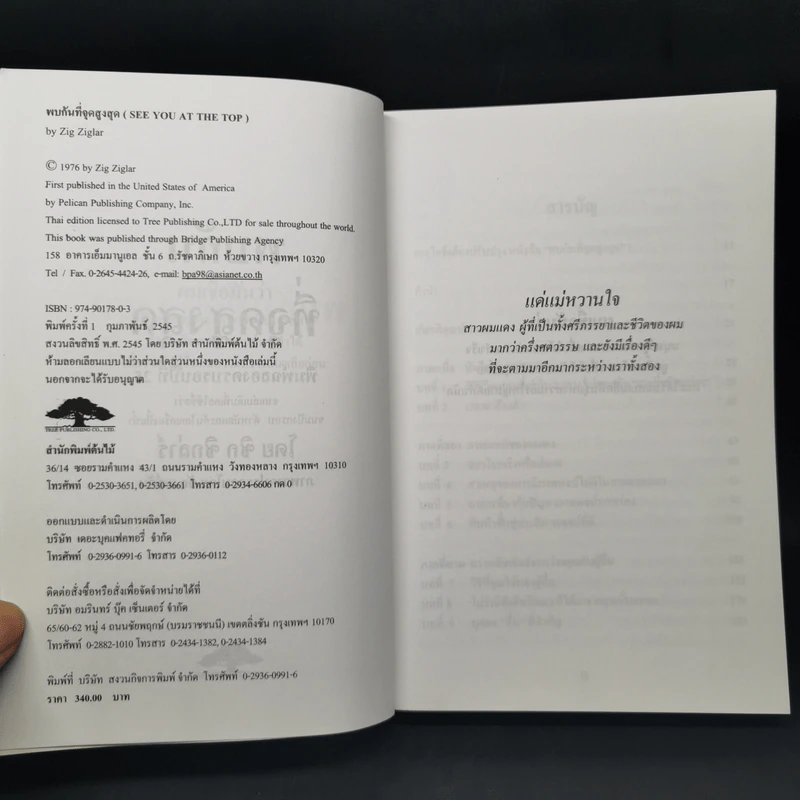 พบกันที่จุดสูงสุด ( SEE YOU AT THE TOP )
by Zig Ziglar
© 1976 by Zig Ziglar
First published in the United States of America
by Pelican Publishing Company, Inc.
Thai edition licensed to Tree Publishing Co.,LTD for sale throughout the world.
This book was published through Bridge Publishing Agency
158 อาคารเอ็มมานูเอล ชั้น 6 ถ.รัชดาภิเษก ห้วยขวาง กรุงเทพฯ 10320
Tel / Fax. 0-2645-4424-26, e-mail: bpa98@asianet.co.th
ISBN : 974-90178-0-3
พิมพ์ครั้งที่ 1 กุมภาพันธ์ 2545
สงวนลิขสิทธิ์ พ.ศ. 2545 โดย บริษัท สำนักพิมพ์ต้นไม้ จำกัด
ห้ามลอกเลียนแบบไม่ว่าส่วนใดส่วนหนึ่งของหนังสือเล่มนี้
นอกจากจะได้รับอนุญาต
TREE PUBLISHING CO., LTD.
สำนักพิมพ์ต้นไม้
36/14 ซอยรามคำแหง 43/1 ถนนรามคำแหง วังทองหลาง กรุงเทพฯ 10310
โทรศัพท์ 0-2530-3651, 0-2530-3661 โทรสาร 0-2934-6606 กด 0
ออกแบบและดำเนินการผลิตโดย
บริษัท เดอะบุคแฟคทอรี่ จำกัด
โทรศัพท์ 0-2936-0991-6 โทรสาร 0-2936-0112
ติดต่อสั่งซื้อหรือสั่งเพื่อจัดจำหน่ายได้ที่
บริษัท อมรินทร์ บุ๊ค เซ็นเตอร์ จำกัด
65/60-62 หมู่ 4 ถนนชัยพฤกษ์ (บรมราชชนนี) เขตตลิ่งชัน กรุงเทพฯ 10170
โทรศัพท์ 0-2882-1010 โทรสาร 0-2434-1382, 0-2434-1384
พิมพ์ที่ บริษัท สงวนกิจการพิมพ์ จำกัด โทรศัพท์ 0-2936-0991-6
ราคา 340.00 บาท
แด่แม่หวานใจ
สาวผมแดง ผู้ที่เป็นทั้งศรีภรรยาและชีวิตของผม
มากว่าครึ่งศตวรรษ และยังมีเรื่องดีๆ
ที่จะตามมาอีกมากระหว่างเราทั้งสอง